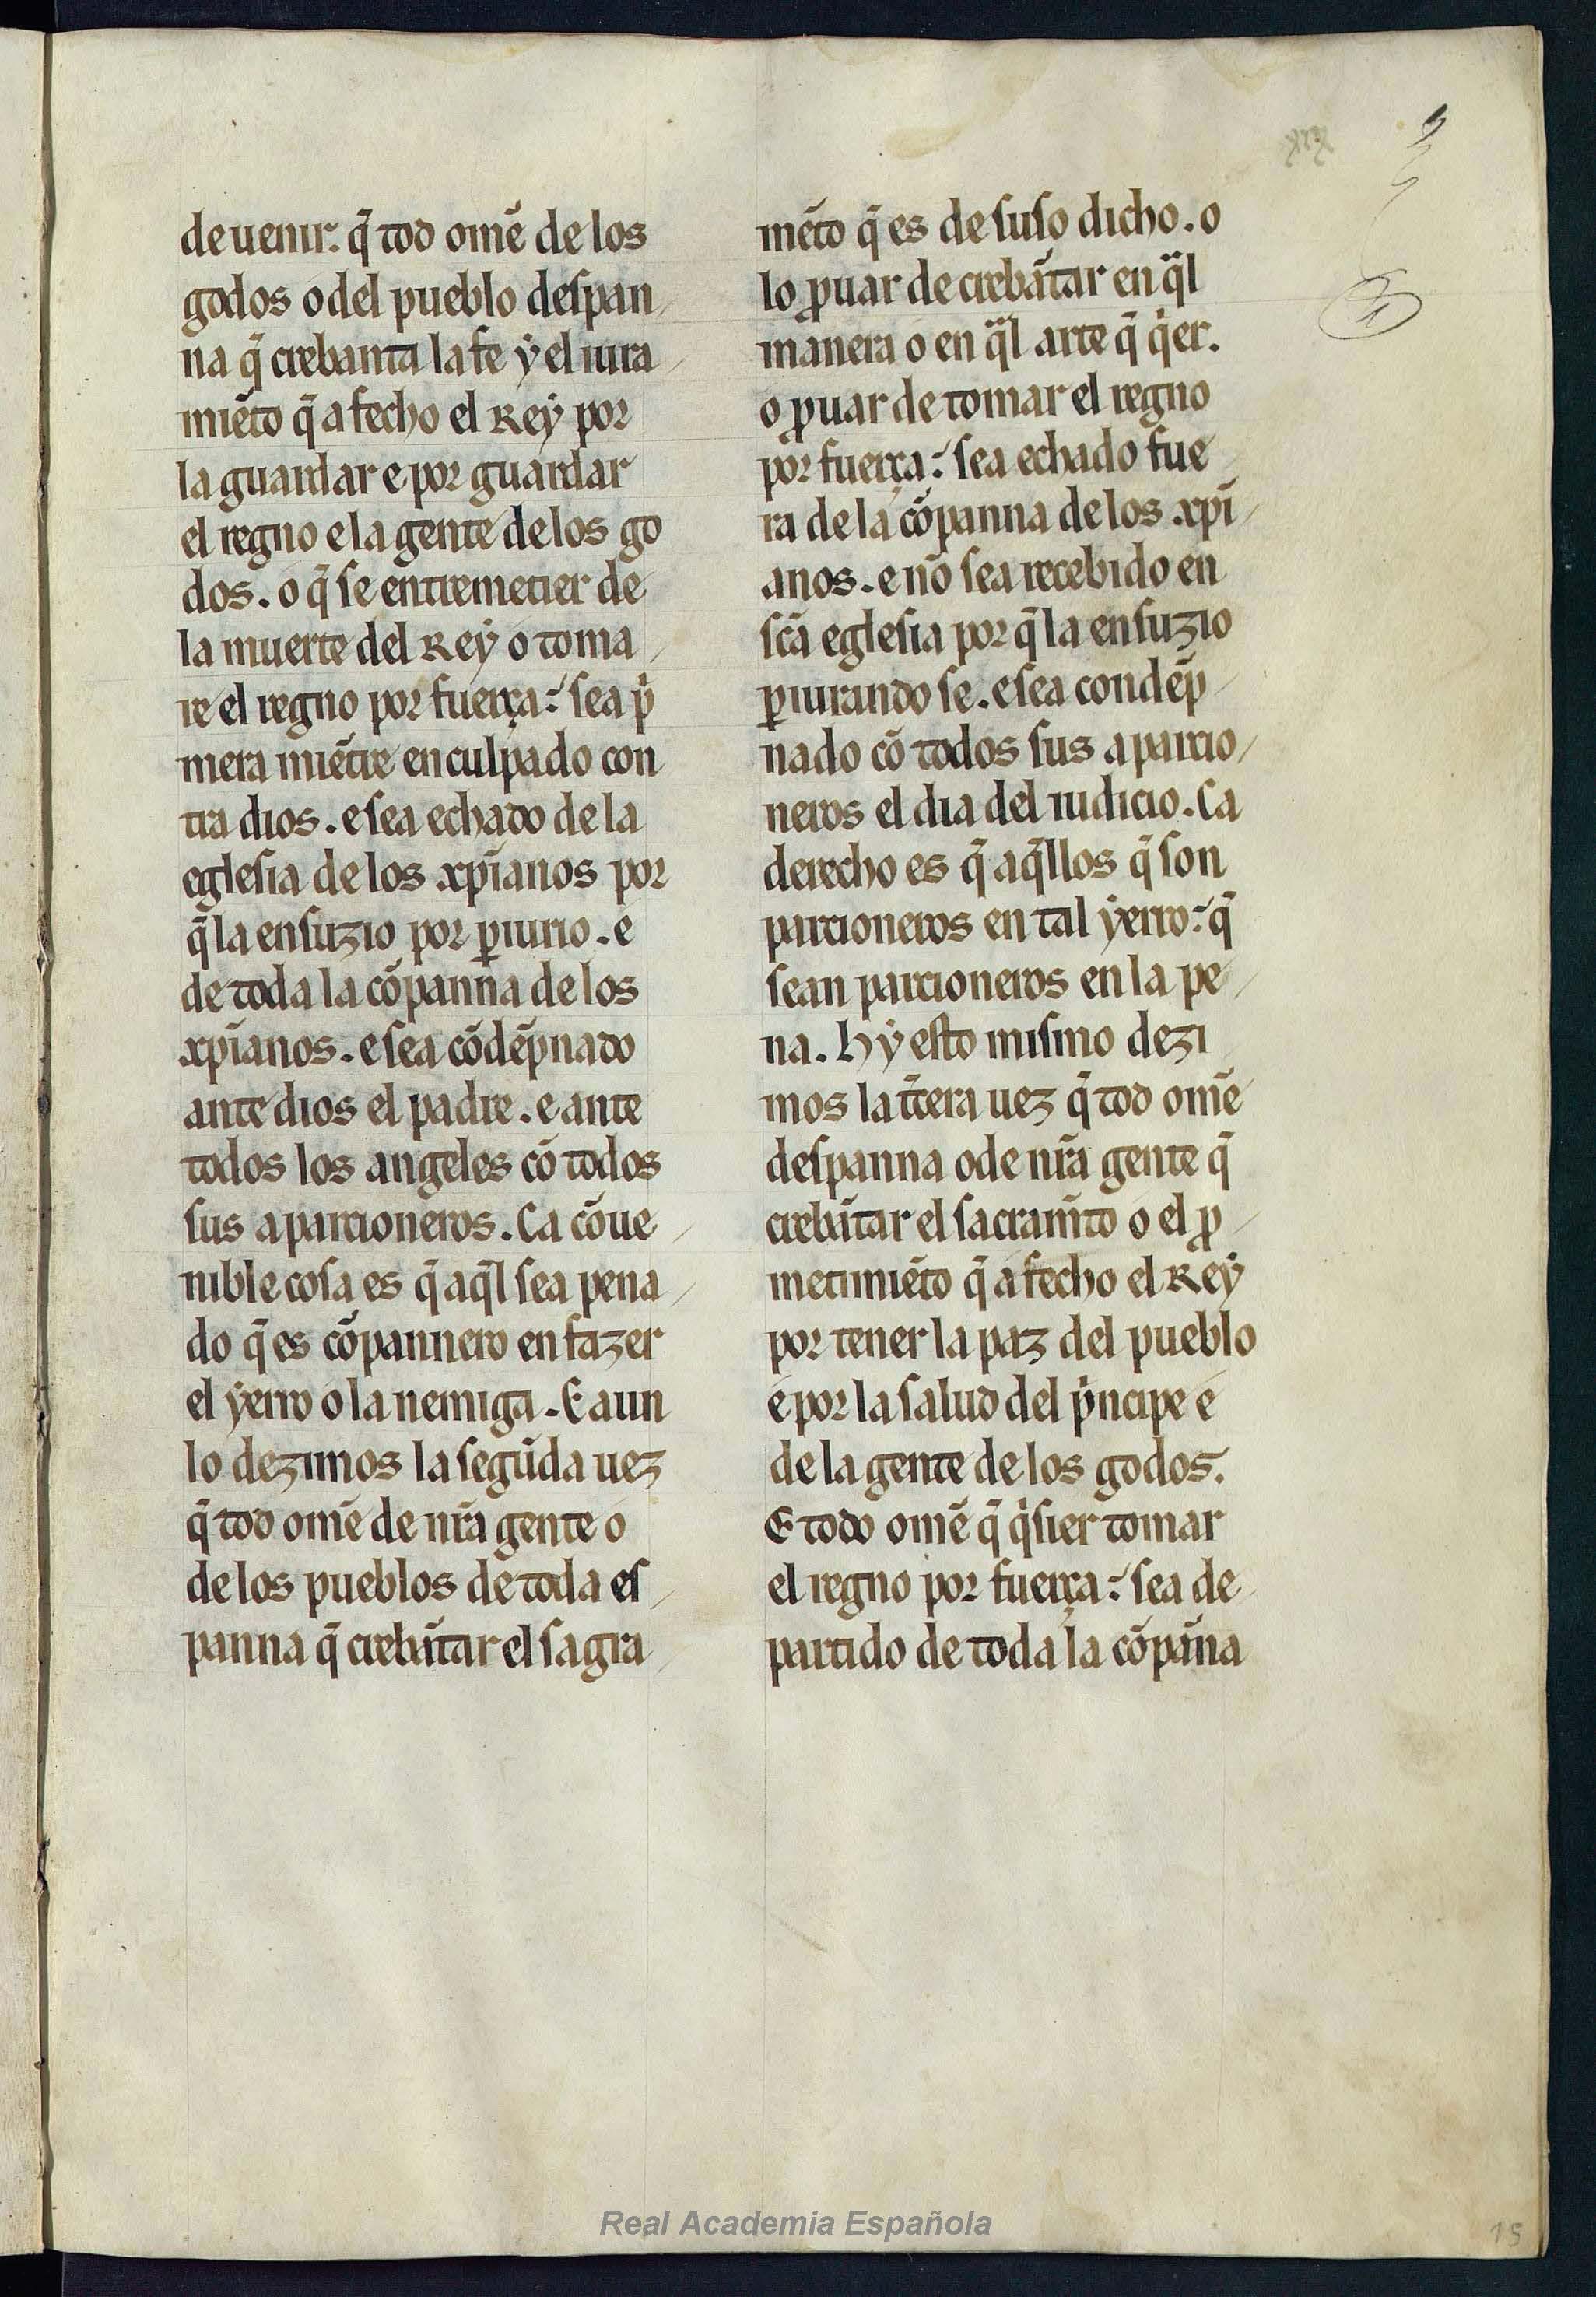 de uenir. q̄ tod omē de los
godos o del pueblo deſpan
na q̄ crebanta la fe ẏ el iura
miēto q̄ a fecho el Reẏ por
la guardar e por guardar
el regno e la gente de los go
dos. o q̄ ſe entremetier de
la muerte del Reẏ o toma
re el regno por fuerça: ſea pͥ
mera miētre enculpado con
tra dios. e ſea echado de la
egleſia de los xp̄ianos por
q̄ la enſuzio por ꝑiurio. e
de toda la cōpanna de los
xp̄ianos. e ſea cōdēpnado
ante dios el padre. e ante
todos los angeles cō todos
ſus aparcioneros. Ca cōue
nible coſa es q̄ aq̄l ſea pena
do q̄ es cōpannero en fazer
el ẏerro o la nemiga. E aun
lo dezimos la ſegūda uez
q̄ tod omē de nr̄a gente o
de los pueblos de toda eſ
panna q̄ crebātar el ſagra
mēto q̄ es de ſuſo dicho. o
lo ꝓuar de crebātar en qͣl
manera o en qͣl arte q̄ qͥer.
o ꝓuar de tomar el regno
por fuerça: ſea echado fue
ra de la cōpanna de los xp̄i
anos. e nō ſea recebido en
ſc̄a egleſia por q̄ la enſuzio
ꝑiurando ſe. e ſea condēp
nado cō todos ſus aparcio
neros el dia del iudicio. Ca
derecho es q̄ aq̄llos q̄ ſon
parcioneros en tal ẏerro: q̄
ſean parcioneros en la pe
na. Hẏ eſto miſmo dezi
mos la t̄cera uez q̄ tod omē
deſpanna o de nr̄a gente q̄
crebātar el ſacram̄to o el ꝓ
metimiēto q̄ a fecho el Reẏ
por tener la paz del pueblo
e por la ſalud del pͥncipe e
de la gente de los godos.
E todo omē q̄ qͥſier tomar
el regno por fuerça: ſea de
partido de toda la cōpāna
Real Academia Española
15